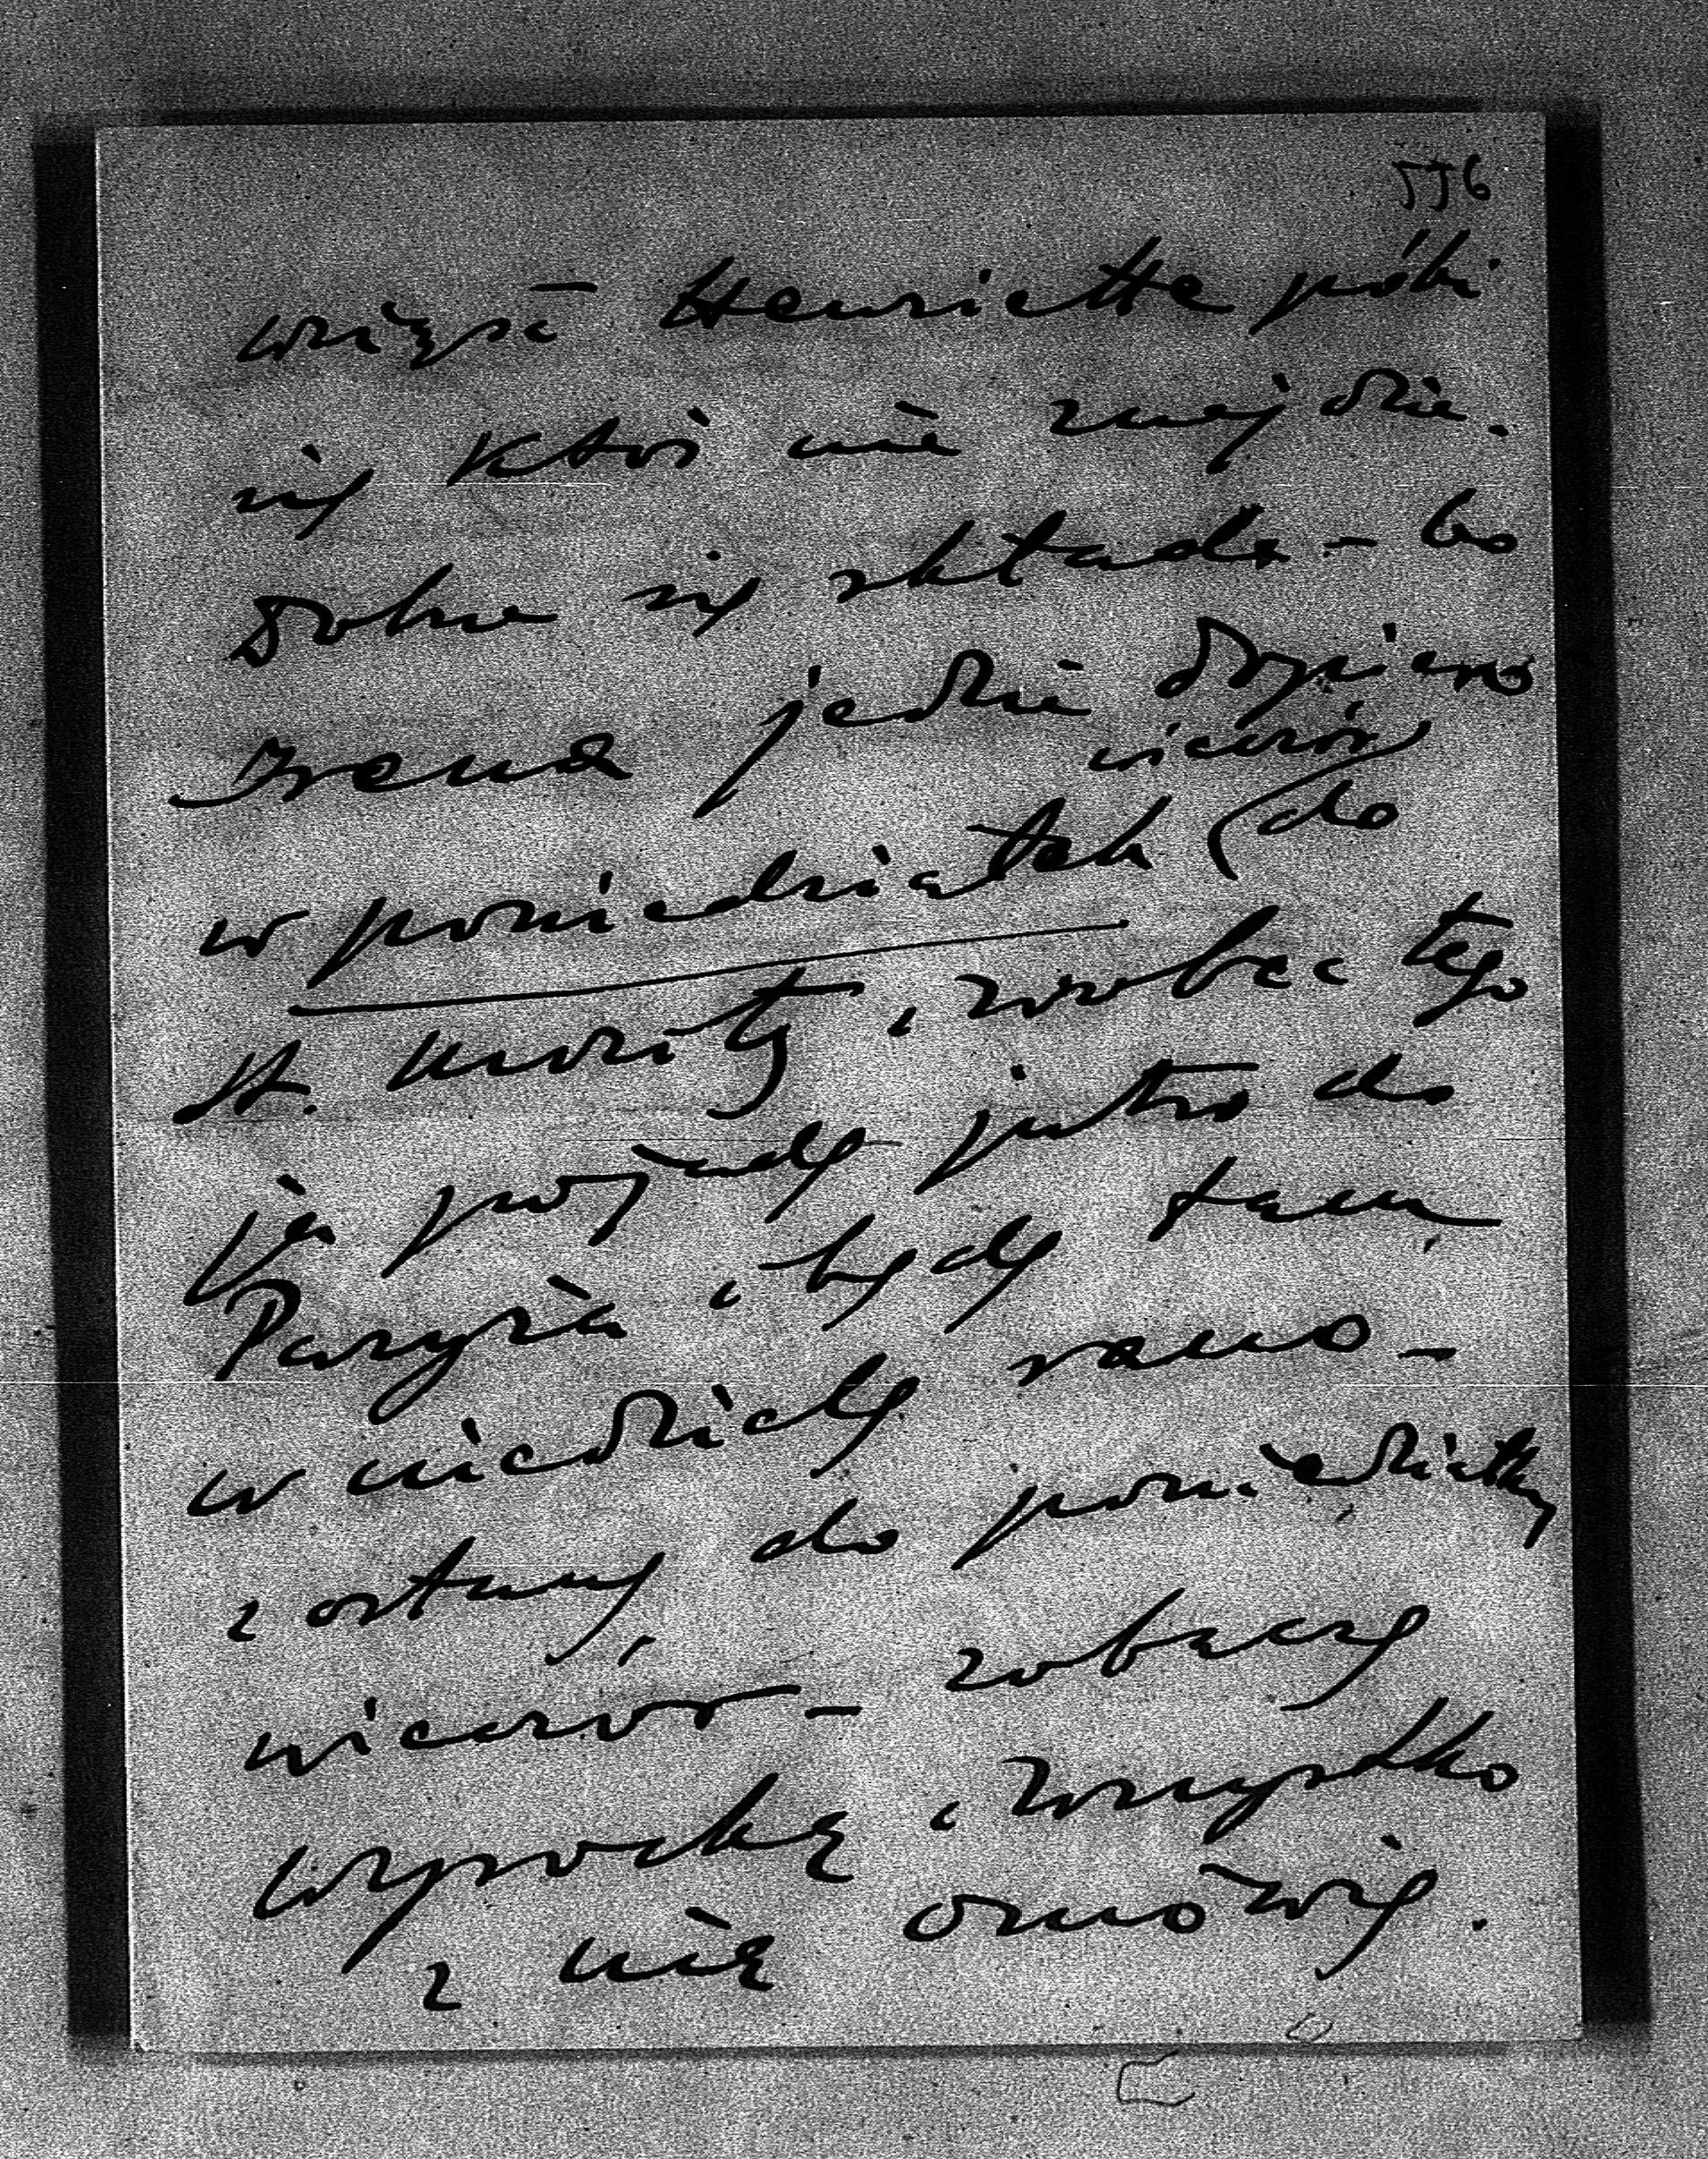 556
wziąść Henriette póki
się ktoś nie znajdzie.
Dobrze się składa – bo
Irena jedzie dopiero
w poniedziałek (do
wieczór
St. Moritz, wobec tego
ja pojadę jutro do
Paryża i będę tam
w niedzielę rano –
zostanę do poniedziałku
wieczór – zobaczę
Wysocką i wszystko
z nią omówię.